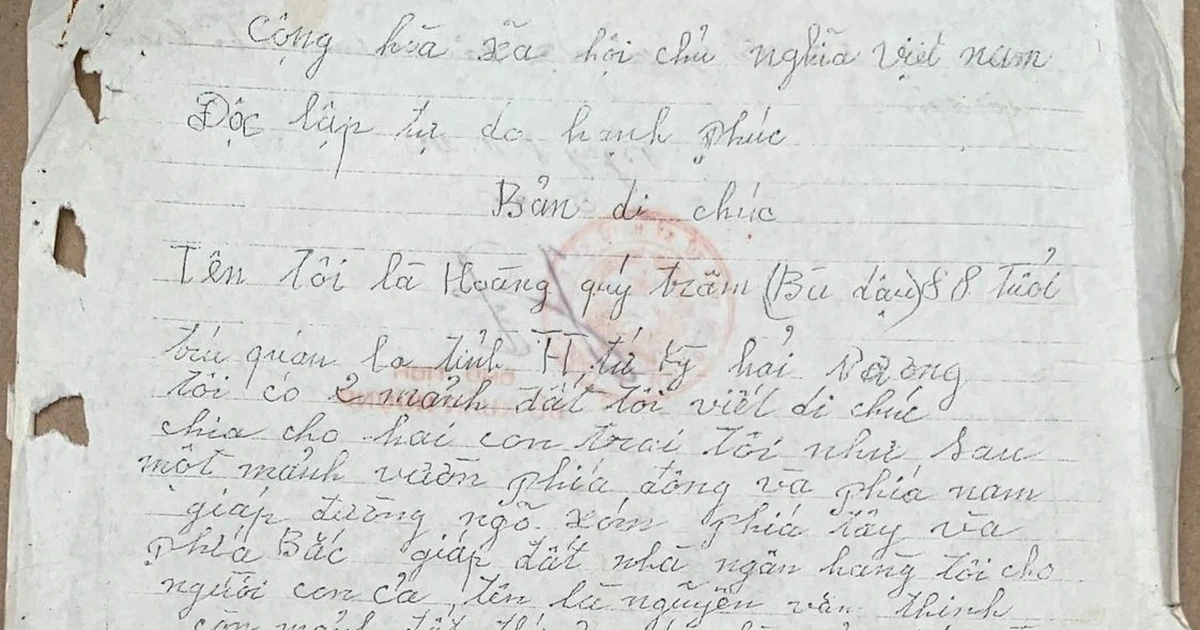 Cộng hòa xã hội chủ nghĩa Việt nam
Độc lập tự do hạnh phúc
Bản di chúc
Tên tôi là Hoàng quý trầm (Bù dậu) 88 tuổi
trú quán la tỉnh TT tứ kỳ hải Dương
tôi có 2 mảnh đất tôi viết di chúc
chia cho hai con trai tôi như sau
một mảnh vườn phía đông và phía nam
giáp đường ngõ xóm phía tây và
phía Bắc giáp đất nhà ngân hàng tôi cho
người con cả tên là nguyễn văn thinh
còn mảnh đất